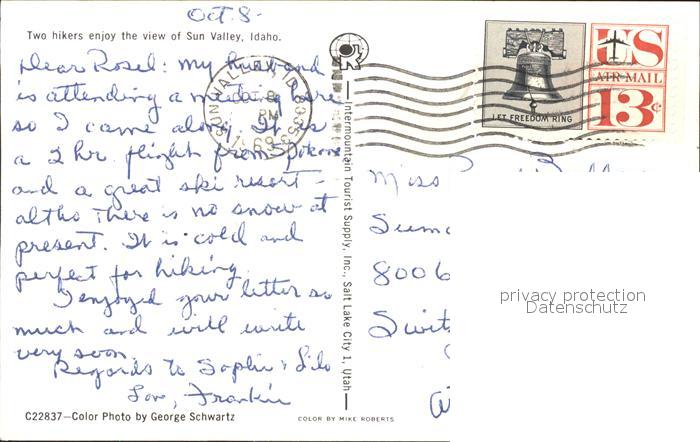 Oct. 8-
Two hikers enjoy the view of Sun Valley, Idaho.
Dear Rosel: My husband
is attending a meeting here
so I came along. It is
a 2 hr. flight from Spokane
and a great ski resort -
altho there is no snow at
present. It is cold and
perfect for hiking.
I enjoyed your letter so
much and will write
very soon.
Regards to Sophie & Lilo
Love, Frankie
C22837—Color Photo by George Schwartz
COLOR BY MIKE ROBERTS
Intermountain Tourist Supply, Inc., Salt Lake City 1, Utah
SUN VALLEY, ID 83353
OCT 8
PM
1969
LET FREEDOM RING
US
AIR MAIL
13c
Miss
8006
privacy protection
Datenschutz